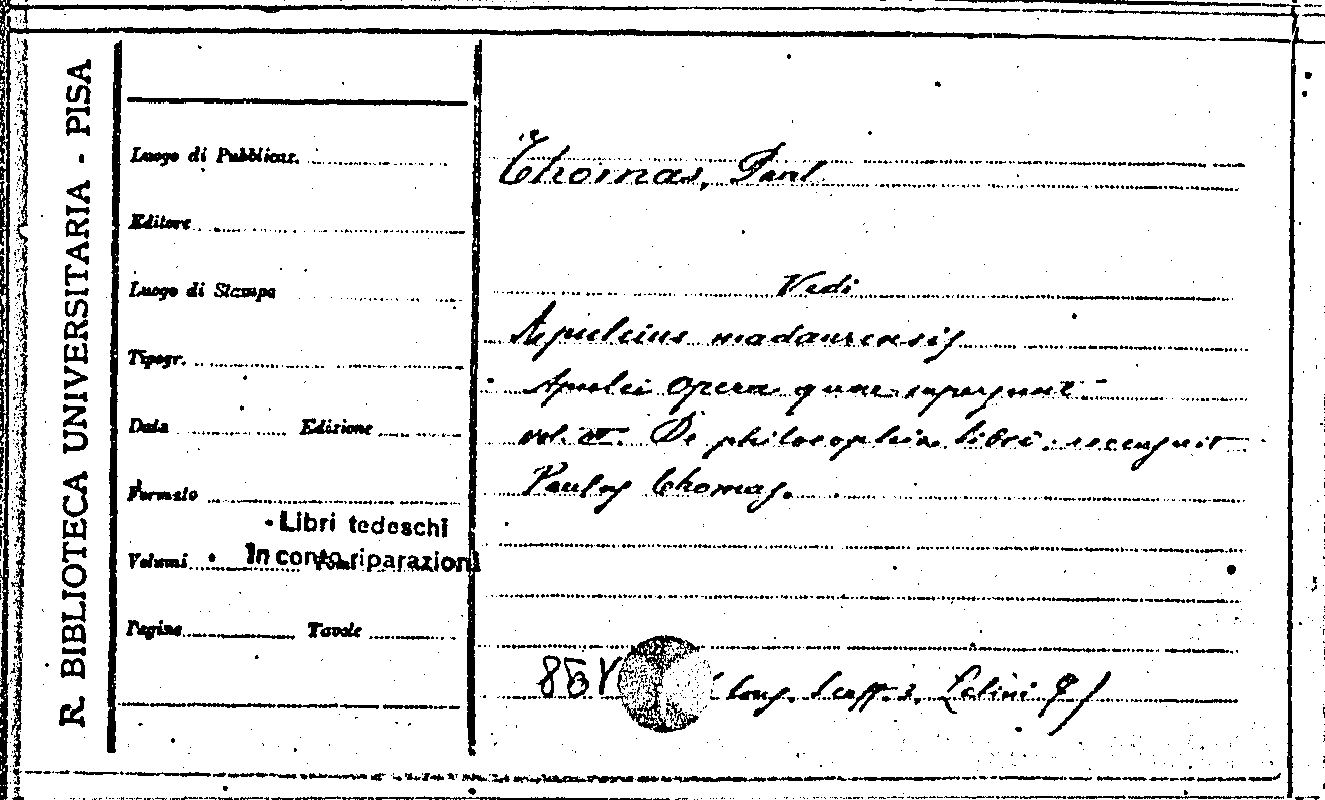 R. BIBLIOTECA UNIVERSITARIA - PISA
Luogo di Pubblicaz.
Editore
Luogo di Stampa
Tipogr.
Data Edizione
Formato
• Libri tedeschi
In conto riparazioni
Volumi
Pagine Tavole
Thomas, Paul
Vedi
Apuleius madaurensis
Apulei Opera quae supersunt
vol. De philosophia libri. recensuit
Paulus Thomas.
Scaff. 2. Latini